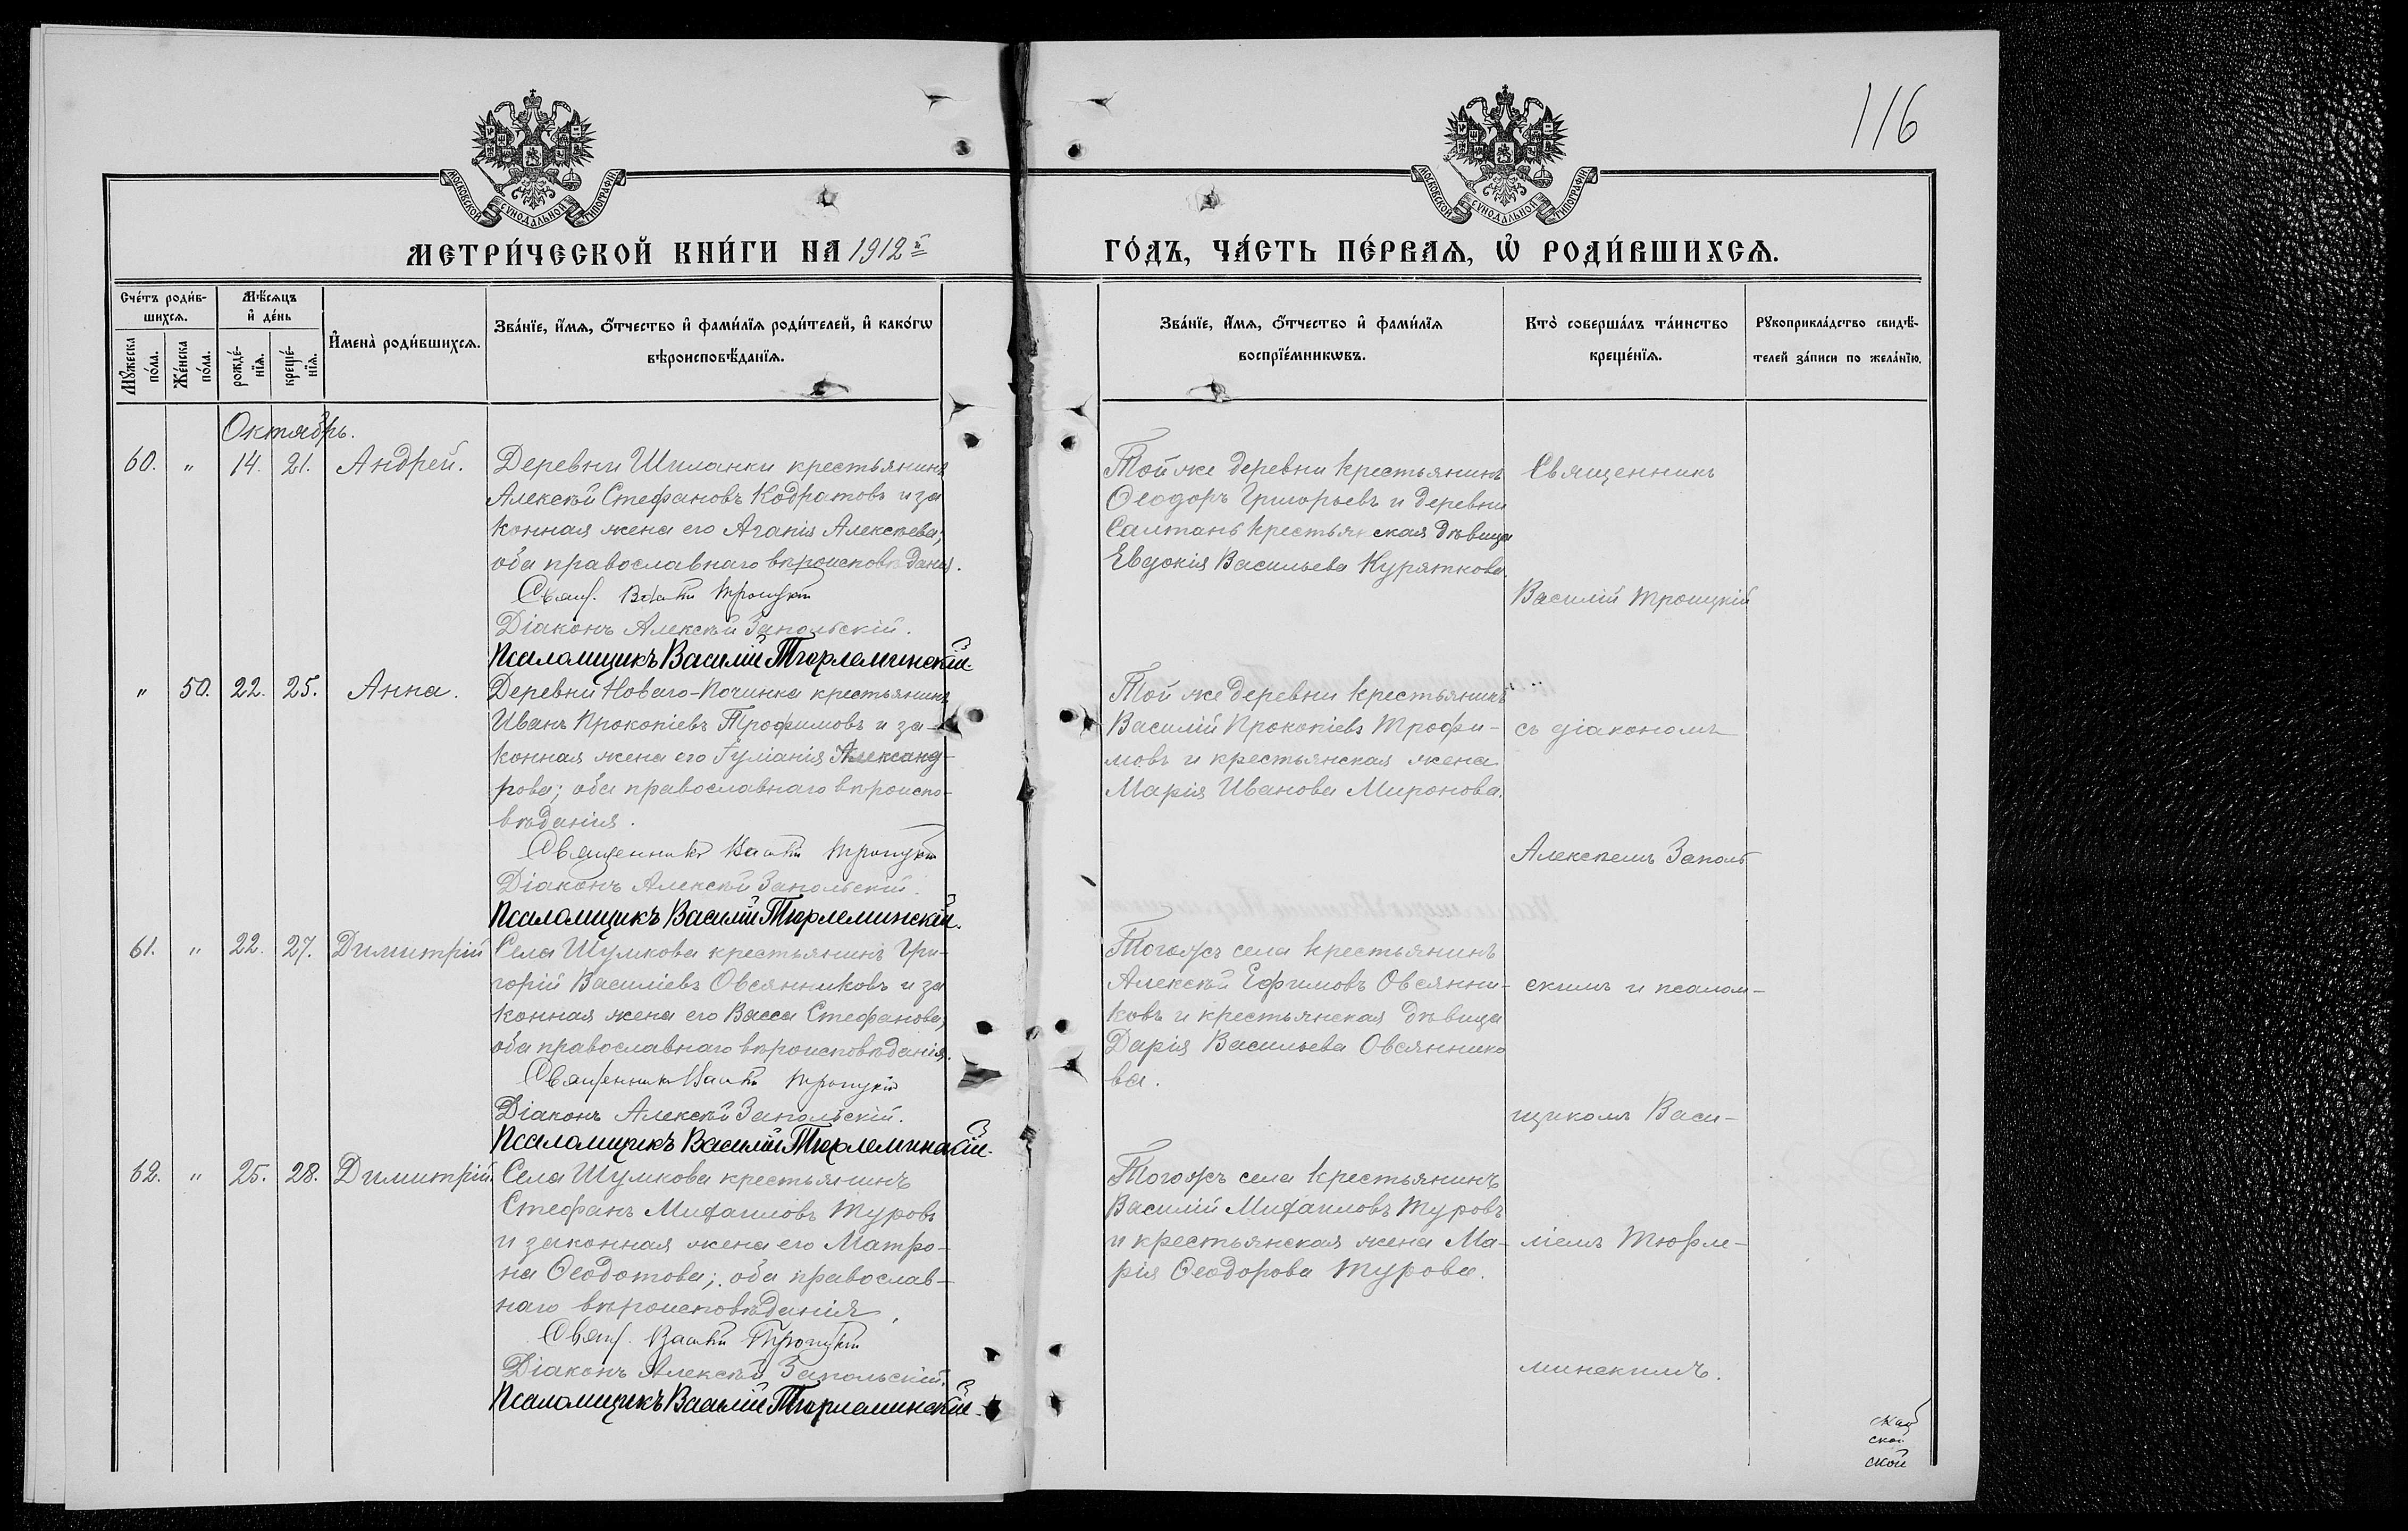 116
МОСКОВСКОЙ СѴНОДАЛЬНОЙ ТИПОГРАФІИ
МОСКОВСКОЙ СѴНОДАЛЬНОЙ ТИПОГРАФІИ
МЕТРИ́ЧЕСКОЙ КНИ́ГИ НА 1912й
ГО́ДЪ, ЧА́СТЬ ПЕ́РВАѦ, Ѡ҆ РОДИ́ВШИХСѦ.
Сче́тъ роди́в-
шихсѧ.
Мꙋ́жеска по́ла.
Же́нска по́ла.
Мѣ́сѧцъ
и҆ де́нь
рожде́-нїѧ.
креще́-нїѧ.
И҆мена̀ роди́вшихсѧ.
Зва́нїе, и҆́мѧ, ѻ҆́тчество и҆ фами́лїѧ роди́телей, и҆ како́гѡ
вѣроисповѣ́данїѧ.
Зва́нїе, и҆́мѧ, ѻ҆́тчество и҆ фами́лїѧ
воспрїе́мникѡвъ.
Кто̀ соверша́лъ та́инство
креще́нїѧ.
Рꙋкоприкла́дство свидѣ́-
телей за́писи по жела́нїю.
Октябрь.
60. " 14. 21. Андрей.
Деревни Шиланки крестьянинъ
Алексѣй Стефановъ Кодратовъ и за
конная жена его Агапія Алексѣева;
оба православнаго вѣроисповѣданія.
Свящ. Василій Троицкій
Діаконъ Алексѣй Запольскій.
Псаломщикъ Василій Тюрлеминскій.
Той же деревни крестьянинъ
Ѳеодоръ Григорьевъ и деревни
Салтанъ крестьянская дѣвица
Евдокія Васильева Куряткова.
" 50. 22. 25. Анна.
Деревни Новаго-Починка крестьянинъ
Иванъ Прокопіевъ Трофимовъ и за-
конная жена его Іуліанія Александ-
рова; оба православнаго вѣроиспо-
вѣданія.
Священникъ Василій Троицкій
Діаконъ Алексѣй Запольскій.
Псаломщикъ Василій Тюрлеминскій.
Той же деревни крестьянинъ
Василій Прокопіевъ Трофи-
мовъ и крестьянская жена
Марія Иванова Миронова.
61. " 22. 27. Димитрій
Села Шумкова крестьянинъ Гри-
горій Василіевъ Овсянниковъ и за
конная жена его Васса Стефанова;
оба православнаго вѣроисповѣданія.
Священникъ Василій Троицкій
Діаконъ Алексѣй Запольскій.
Псаломщикъ Василій Тюрлеминскій.
Тогожъ села крестьянинъ
Алексѣй Ефимовъ Овсянни-
ковъ и крестьянская дѣвица
Дарія Васильева Овсяннико
ва.
62. " 25. 28. Димитрій.
Села Шумкова крестьянинъ
Стефанъ Михаиловъ Туровъ
и законная жена его Матро-
на Ѳеодотова; оба православ-
наго вѣроисповѣданія.
Свящ. Василій Троицкій
Діаконъ Алексѣй Запольскій.
Псаломщикъ Василій Тюрлеминскій.
Тогожъ села крестьянинъ
Василій Михаиловъ Туровъ
и крестьянская жена Ма-
рія Ѳеодорова Турова.
Священникъ
Василій Троицкій
съ діакономъ
Алексѣемъ Заполь
скимъ и псалом-
щикомъ Васи-
ліемъ Тюрле-
минскимъ.
ской
ской